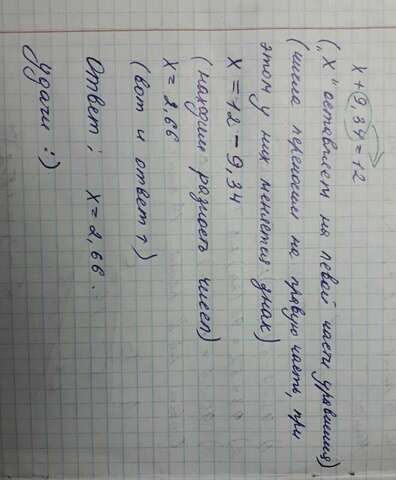 x + 9,34 = 12
("X" оставляем на левой части уравнения)
(числа переносим на правую часть, при
этом у них меняется знак)
X = 12 - 9,34
(находим разность чисел)
X = 2,66
(вот и ответ↑)
Ответ: X = 2,66.
Удачи :)